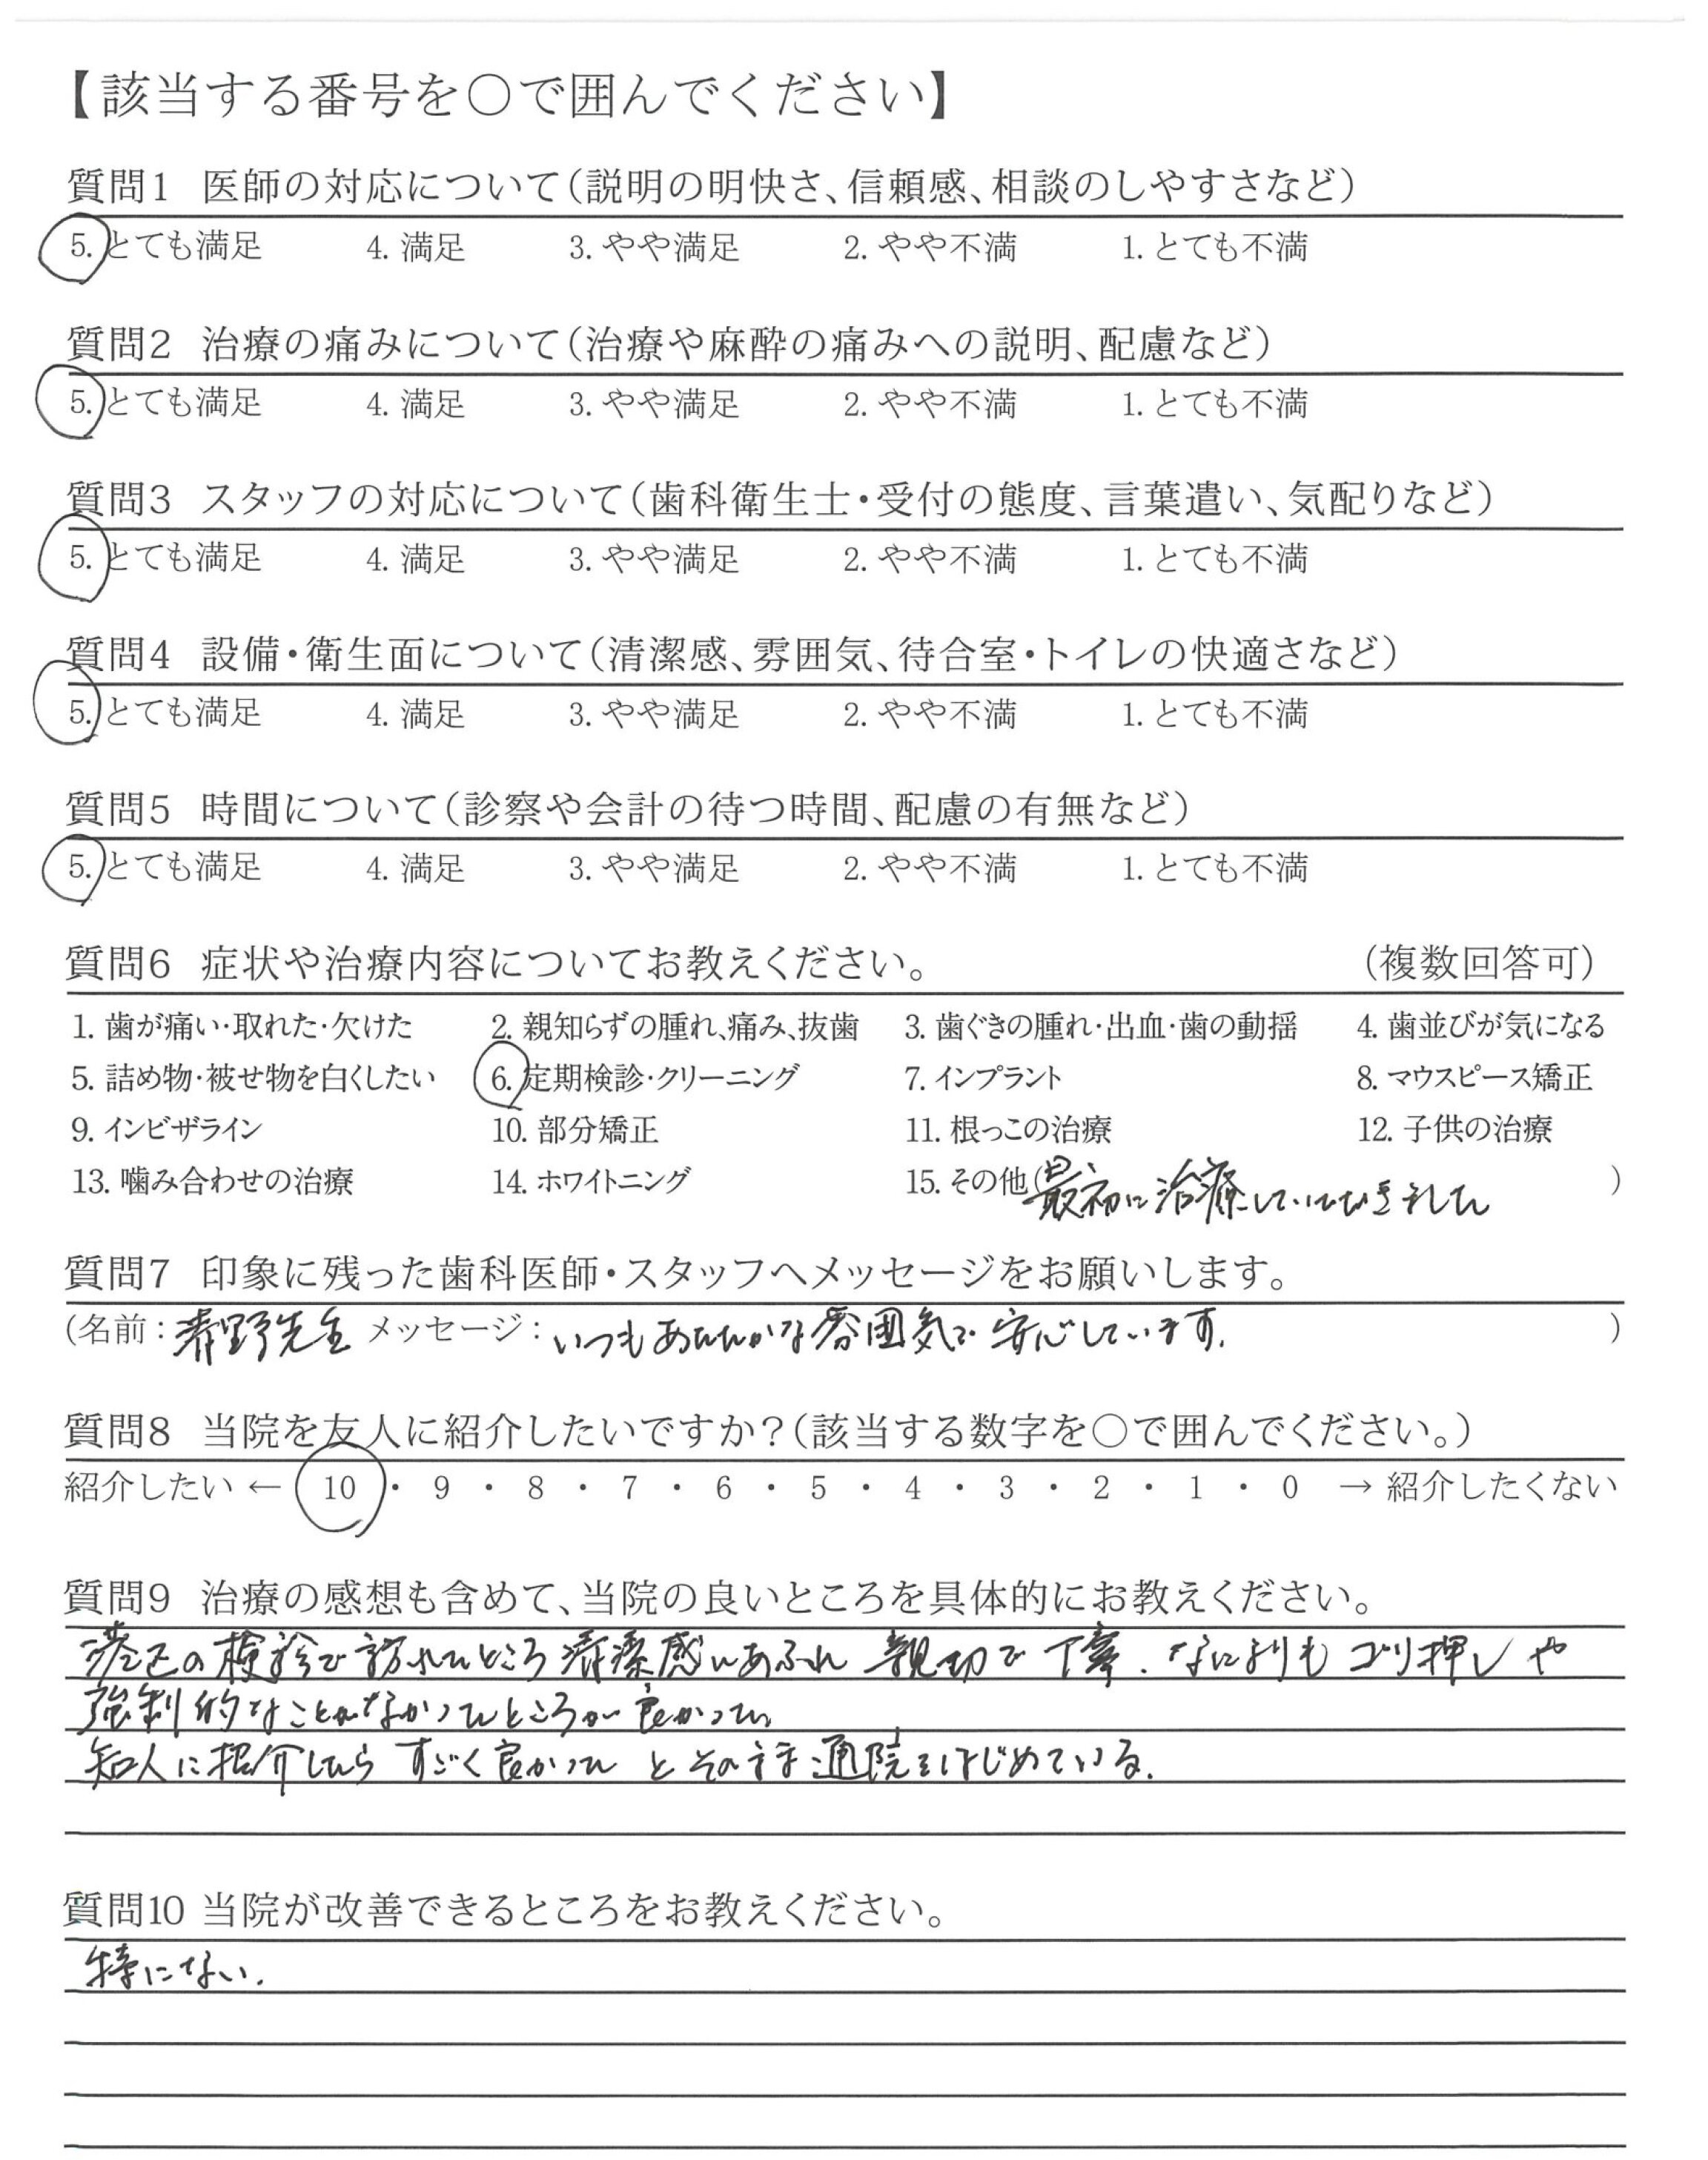 【該当する番号を○で囲んでください】
質問1 医師の対応について(説明の明快さ、信頼感、相談のしやすさなど)
5. とても満足 4. 満足 3. やや満足 2. やや不満 1. とても不満
質問2 治療の痛みについて(治療や麻酔の痛みへの説明、配慮など)
5. とても満足 4. 満足 3. やや満足 2. やや不満 1. とても不満
質問3 スタッフの対応について(歯科衛生士・受付の態度、言葉遣い、気配りなど)
5. とても満足 4. 満足 3. やや満足 2. やや不満 1. とても不満
質問4 設備・衛生面について(清潔感、雰囲気、待合室・トイレの快適さなど)
5. とても満足 4. 満足 3. やや満足 2. やや不満 1. とても不満
質問5 時間について(診察や会計の待つ時間、配慮の有無など)
5. とても満足 4. 満足 3. やや満足 2. やや不満 1. とても不満
質問6 症状や治療内容についてお教えください。 (複数回答可)
1. 歯が痛い・取れた・欠けた 2. 親知らずの腫れ、痛み、抜歯 3. 歯ぐきの腫れ・出血・歯の動揺 4. 歯並びが気になる
5. 詰め物・被せ物を白くしたい 6. 定期検診・クリーニング 7. インプラント 8. マウスピース矯正
9. インビザライン 10. 部分矯正 11. 根っこの治療 12. 子供の治療
13. 噛み合わせの治療 14. ホワイトニング 15. その他(最初に治療していただきました)
質問7 印象に残った歯科医師・スタッフへメッセージをお願いします。
(名前:青野先生 メッセージ:いつもあたたかな雰囲気で安心しています.)
質問8 当院を友人に紹介したいですか?(該当する数字を○で囲んでください。)
紹介したい ← 10 ・ 9 ・ 8 ・ 7 ・ 6 ・ 5 ・ 4 ・ 3 ・ 2 ・ 1 ・ 0 → 紹介したくない
質問9 治療の感想も含めて、当院の良いところを具体的にお教えください。
港区の検診で訪れたところ清潔感にあふれ 親切で丁寧. なによりもゴリ押しや
強制的なことがなかったところが良かった。
知人に紹介したら すごく良かった とそのまま通院をはじめている.
質問10 当院が改善できるところをお教えください。
特にない.